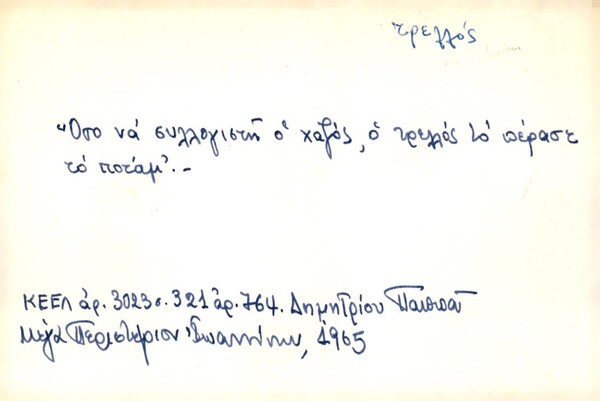 τρελλός
Ὅσο νά συλλογιστῆ ὁ χαζός, ὁ τρελλός τό πέρασε
τό ποτάμ'. -
ΚΕΕΛ ἀρ. 3023 σ. 321 ἀρ. 764. Δημητρίου
Μέγα Περιστέριον Ἰωαννίνων, 1965